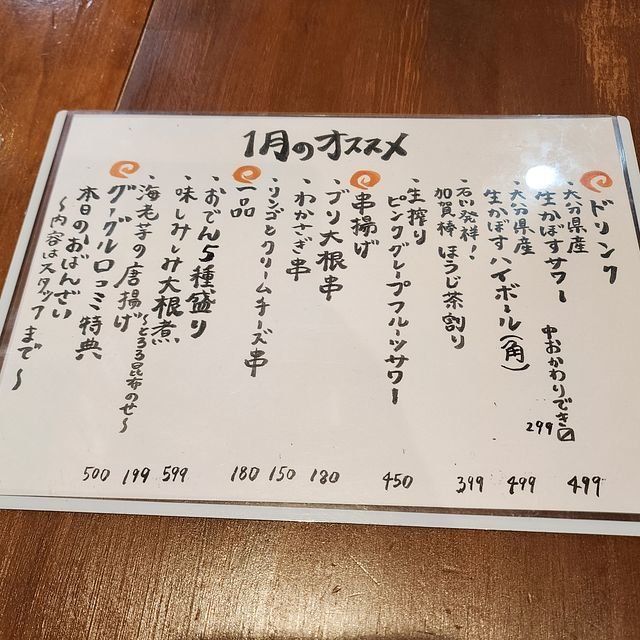 1月のオススメ
ドリンク
・大分県産
生かぼすサワー
中おかわりでき〼
299
499
・大分県産
生かぼすハイボール(角)
499
・石川発祥!
加賀棒ほうじ茶割り
399
・生搾り
ピンクグレープフルーツサワー
450
串揚げ
・ブリ大根串
180
・わかさぎ串
150
・リンゴとクリームチーズ串
180
一品
・おでん5種盛り
599
・味しみしみ大根煮
199
・海老芋の唐揚げ
〜とろろ昆布のせ〜
500
グーグル口コミ特典
本日のおばんざい
〜内容はスタッフまで〜